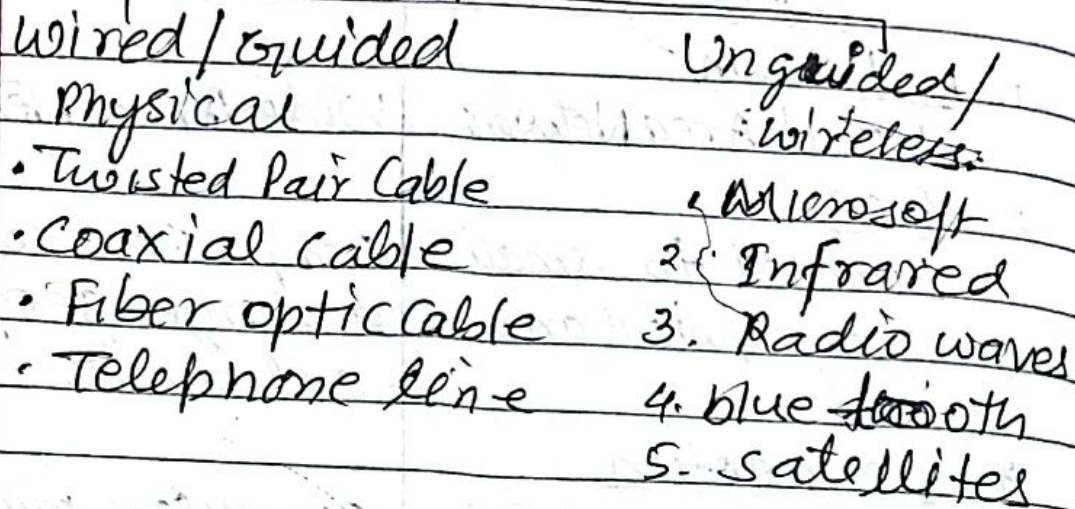 Wired/Guided
Physical
• Twisted Pair Cable
• Coaxial Cable
• Fiber optic Cable
• Telephone line
Unguided/
wireless:
Microsoft
2. Infrared
3. Radio waves
4. blue tooth
5. Satellites